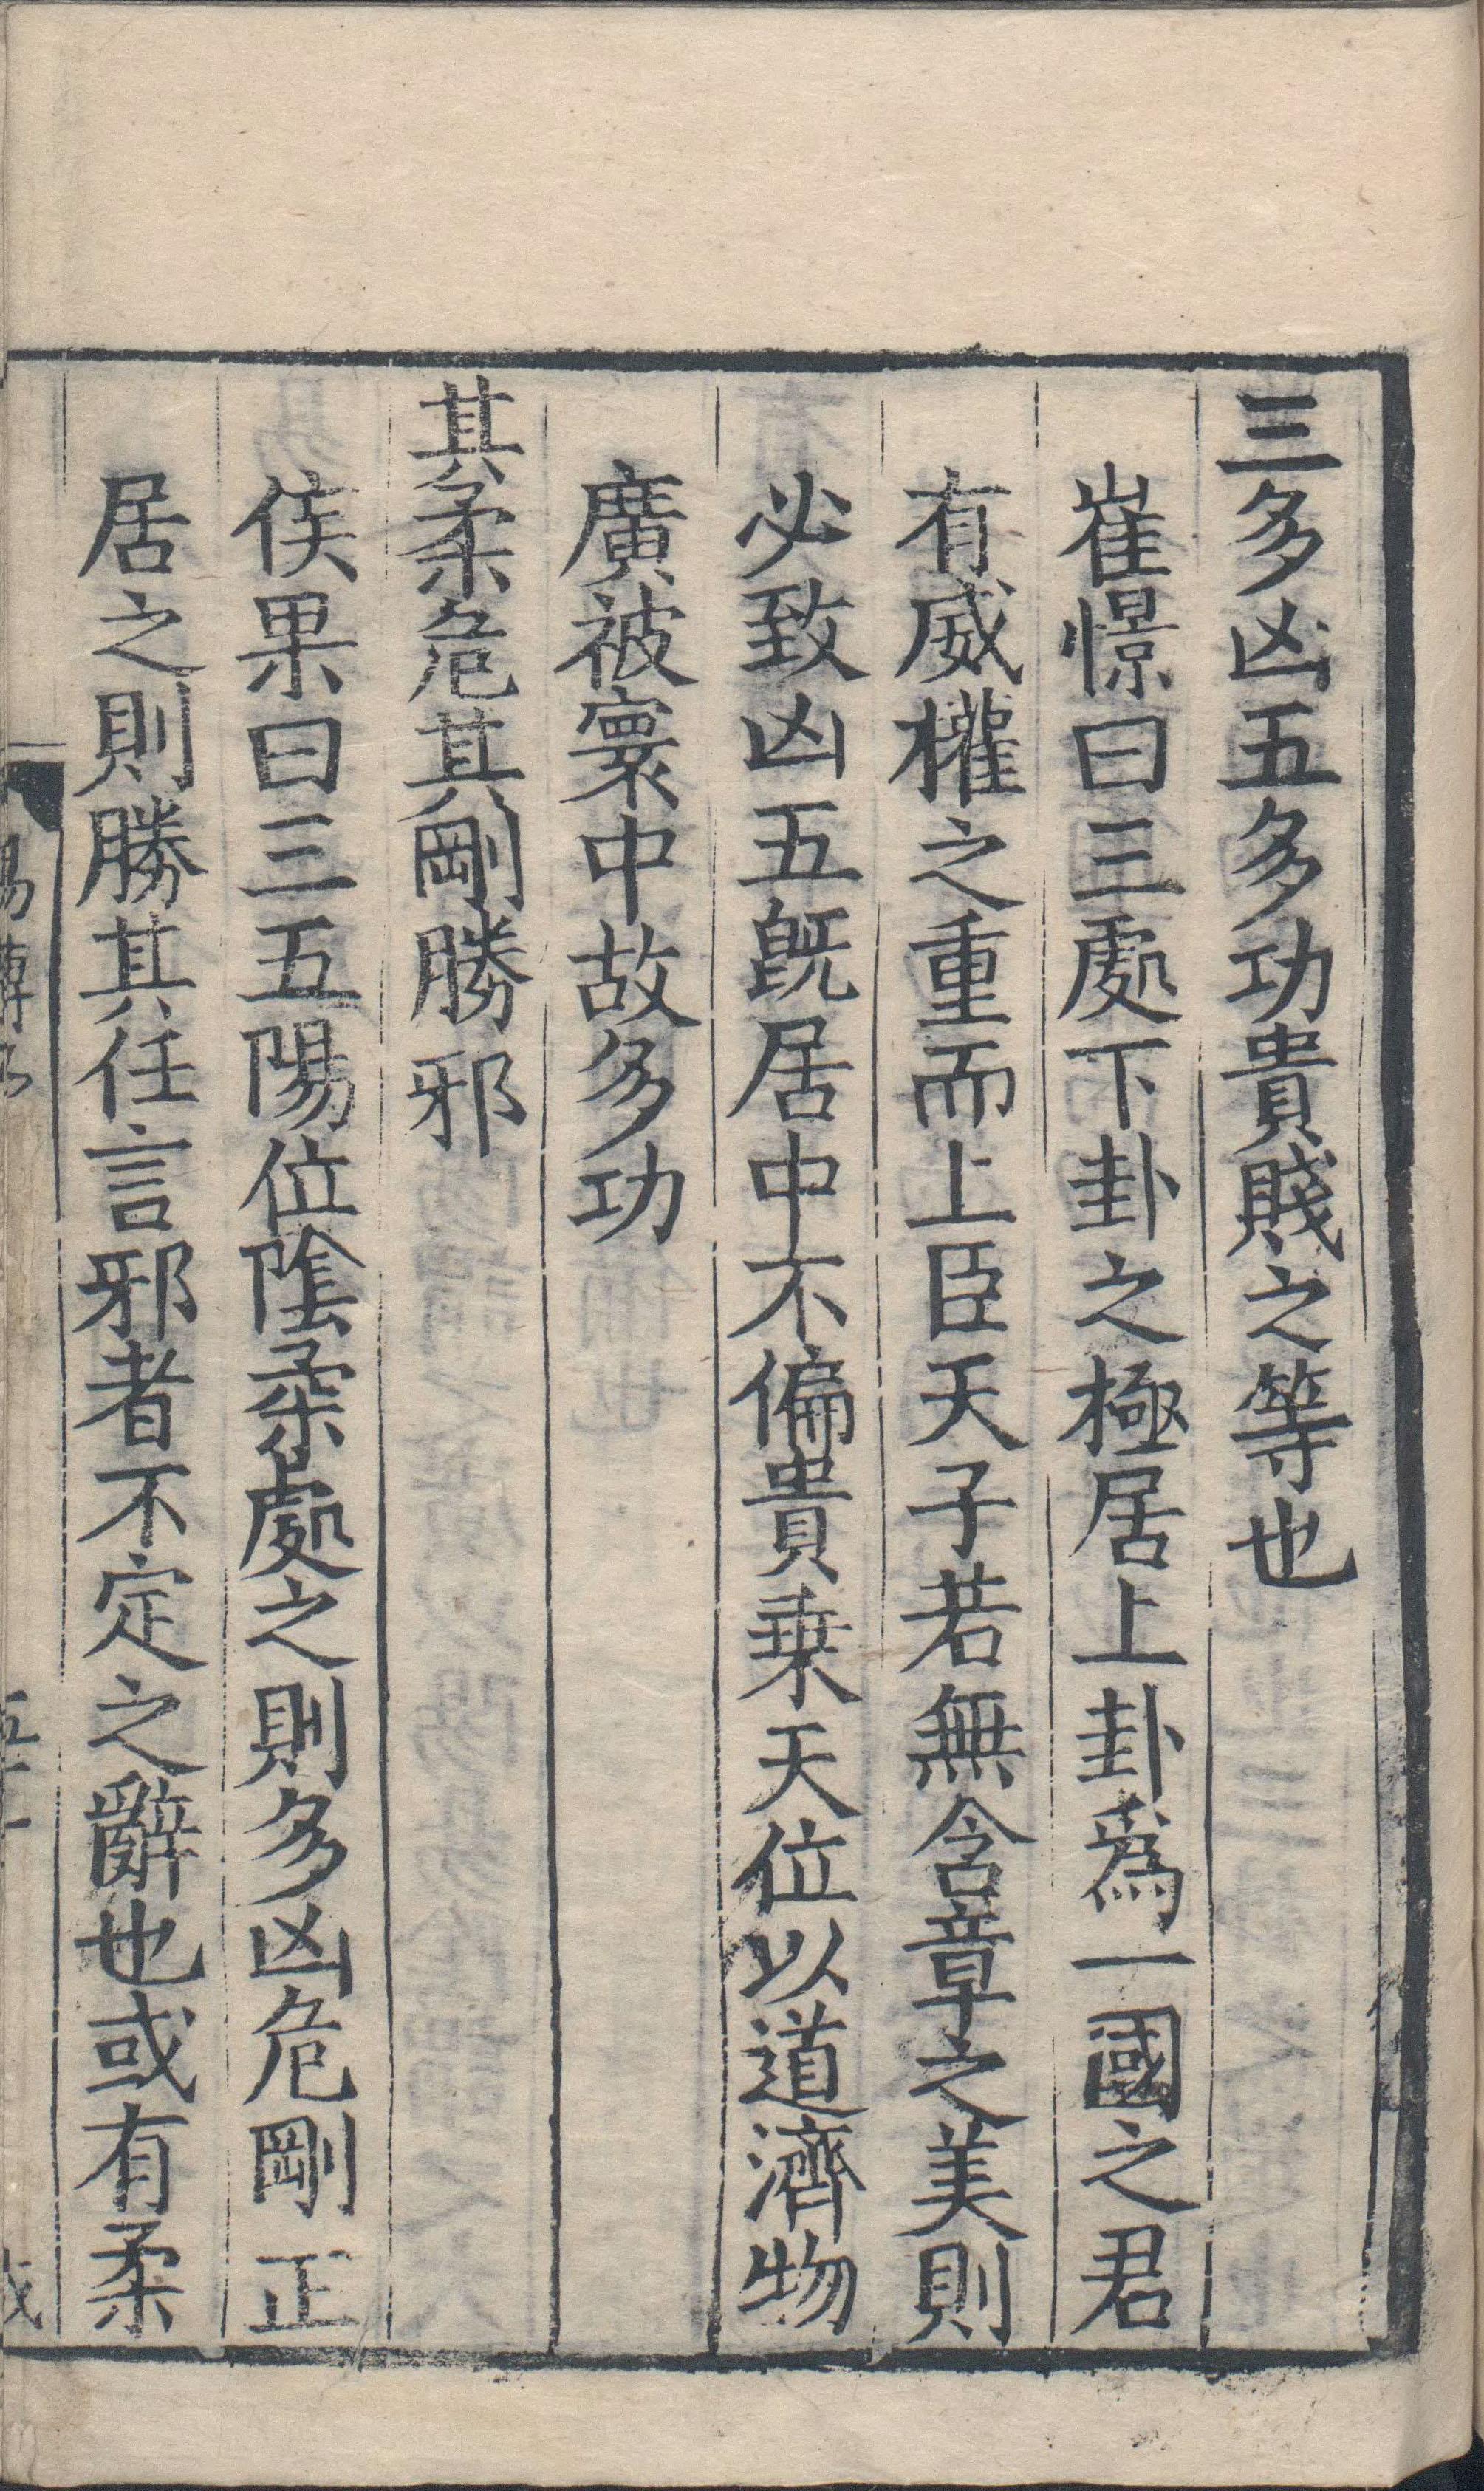 三多凶五多功貴賤之等也
崔憬曰三處下卦之極居上卦爲一國之君
有威權之重而上臣天子若無含章之美則
必致凶五旣居中不偏貴乗天位以道濟物
廣被寰中故多功
其柔危其剛勝邪
侯果曰三五陽位陰柔處之則多凶危剛正
居之則勝其任言邪者不定之辭也或有柔